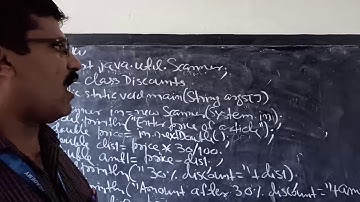 java.util.Scanner;
class Discounts
static void main(String args[])
in=new Scanner(System.in);
println("Enter price of article");
double price=in.nextDouble();
double dist=price*30/100.
double amt=price-dist;
println("30% discount="+dist);
println("Amount after 30% discount="+am